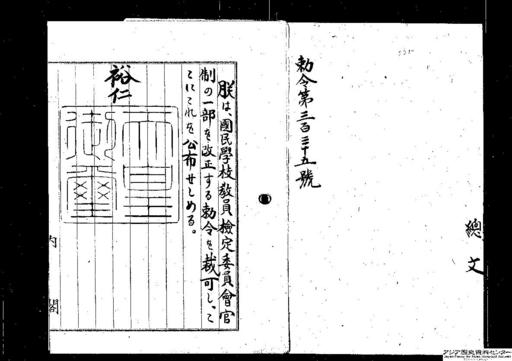 勅令第三百三十五號
總文
朕は、國民學校教員檢定委員會官
制の一部を改正する勅令を裁可し、こ
こにこれを公布せしめる。
裕仁
天皇御璽
内閣
アジア歴史資料センター